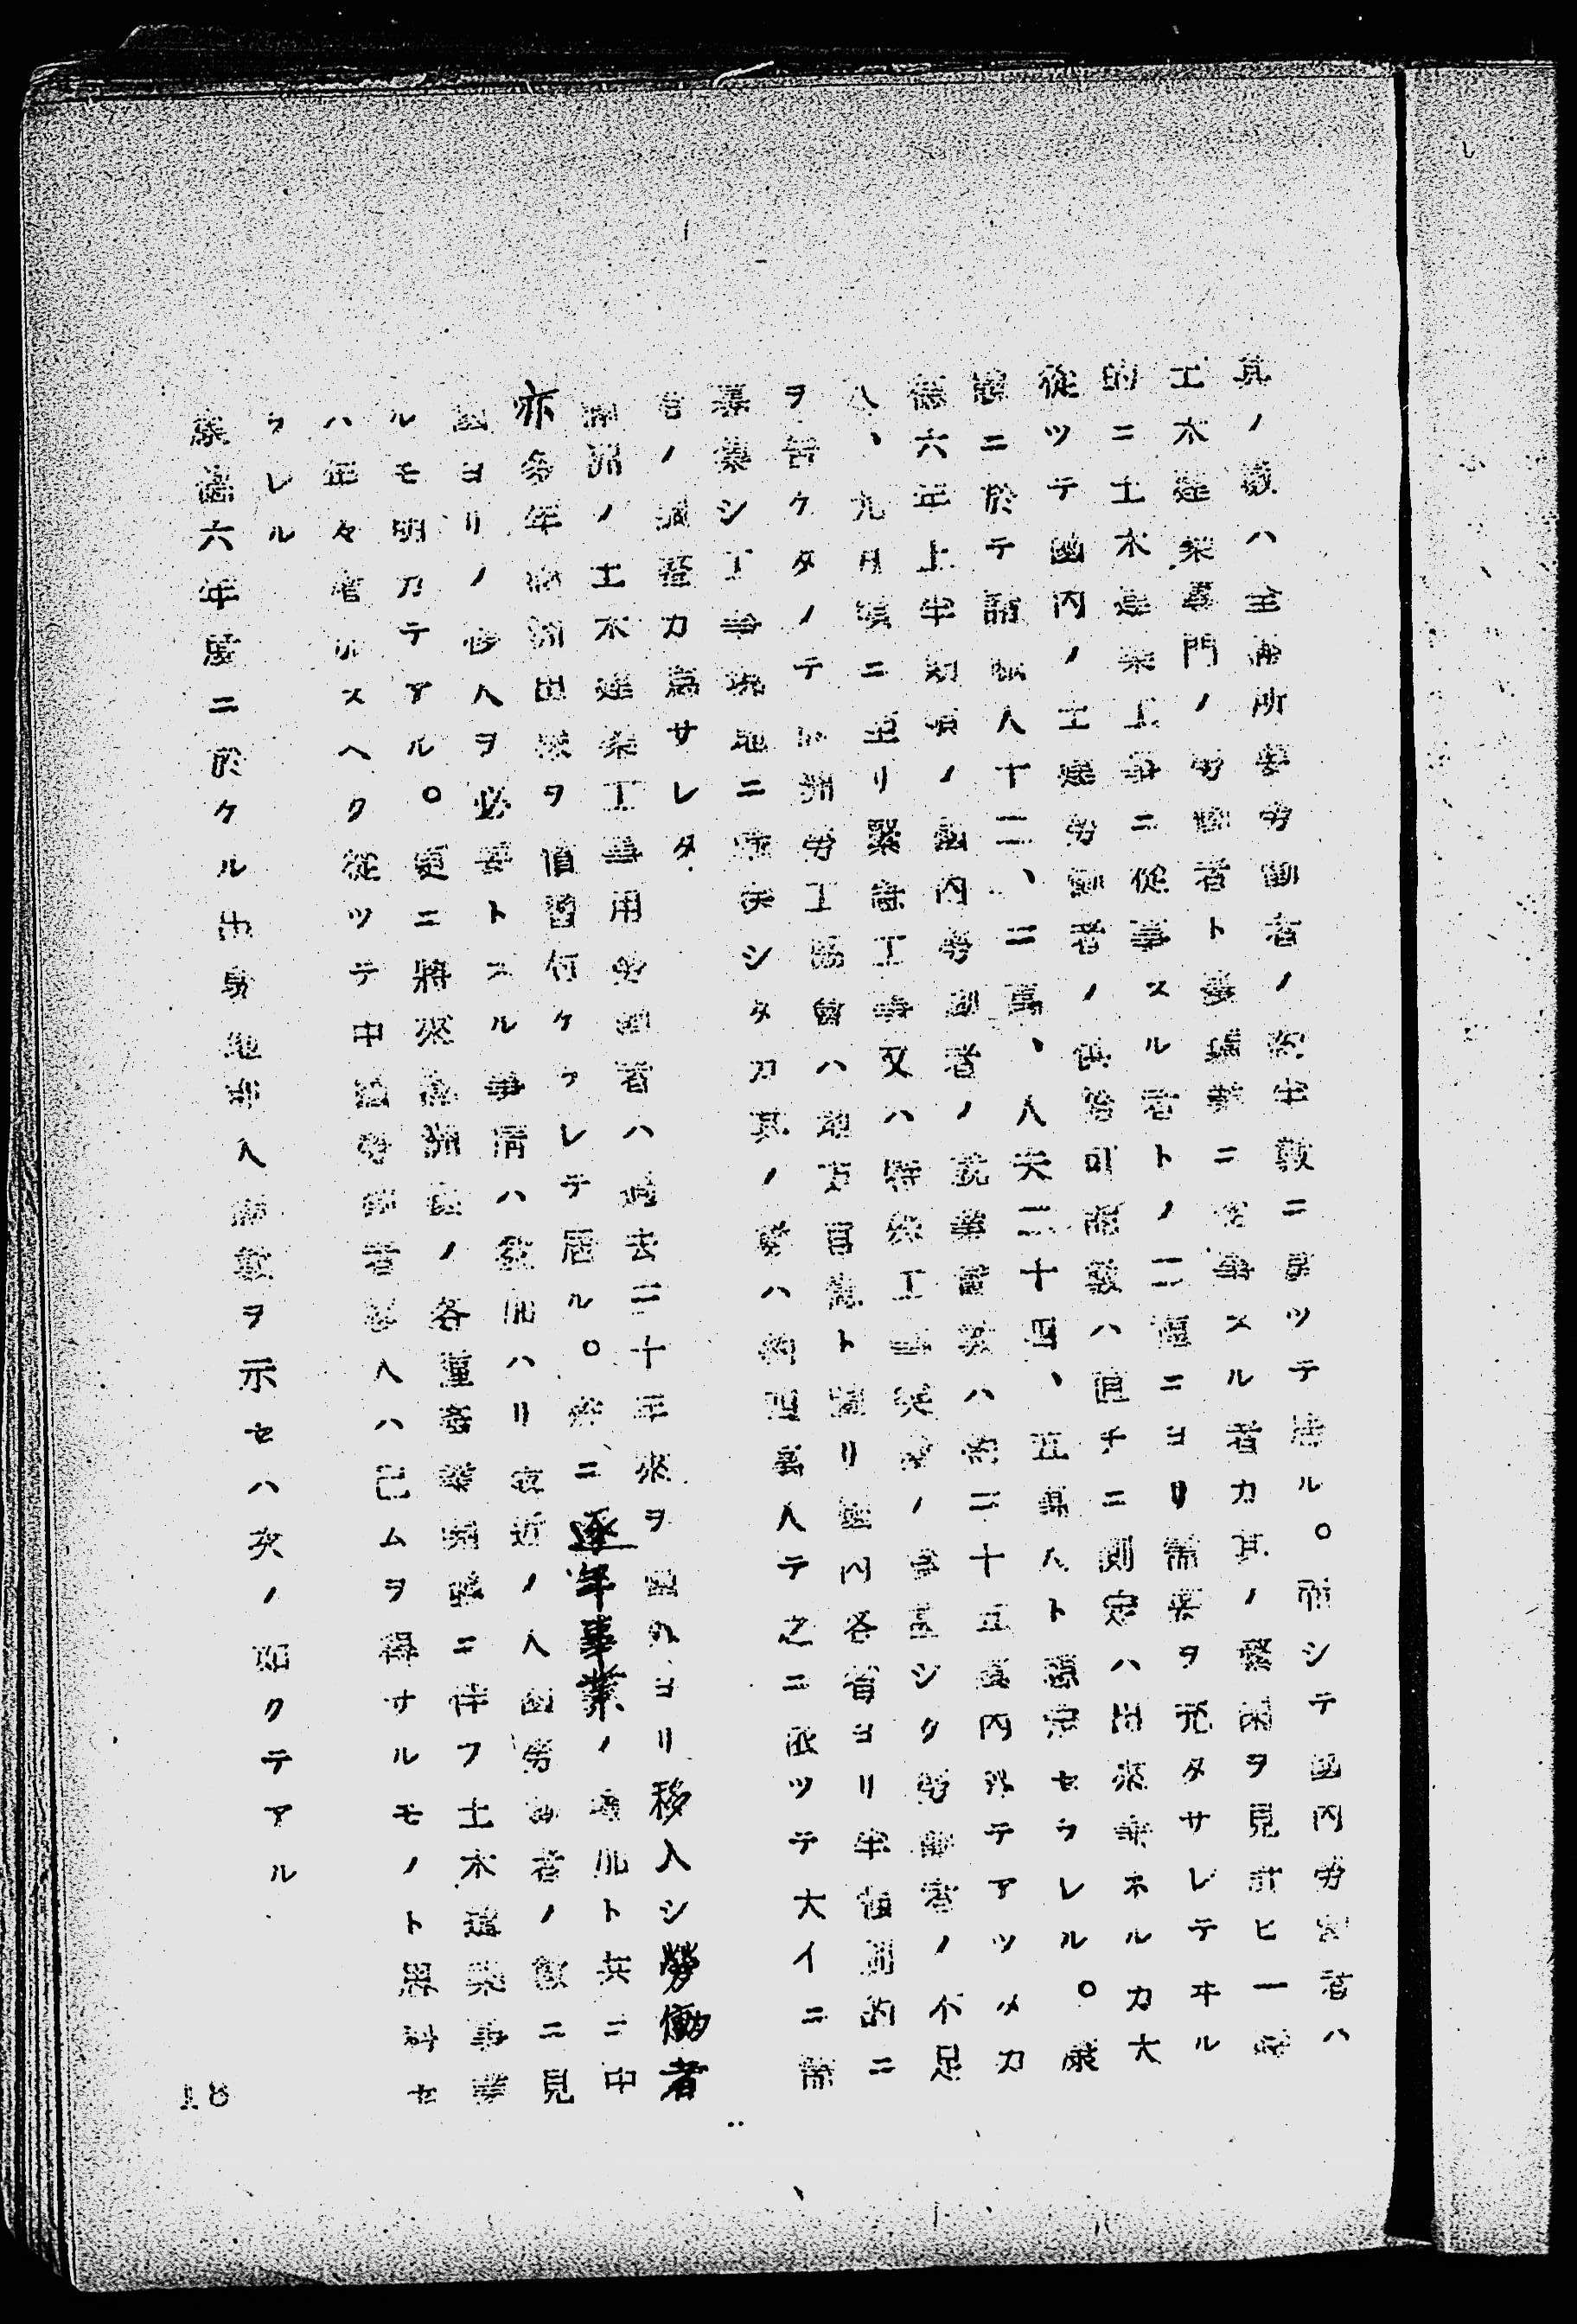 其ノ數ハ全滿所要労働者ノ約半數ニ昇ツテ居ル。而シテ國内労働者ハ
工木建築專門ノ労働者ト農業ニ從事スル者カ其ノ餘閑ヲ見計ヒ一時
的ニ土木建築工事ニ從事スル者トノ二種ニヨリ需要ヲ充タサレテヰル
從ツテ國内ノ土建労働者ノ供給可能數ハ直チニ測定ハ出來兼ネルカ大
體ニ於テ諸職人十二、三萬、人夫二十四、五萬人ト想定セラレル。康
德六年上半期頃ノ國内労働者ノ就業者數ハ約三十五萬内外テアツタカ
八、九月ノ頃ニ至リ緊急工事又ハ特殊工事突發ノ爲甚シク労働者ノ不足
ヲ告ケタノテ滿洲労工協會ハ地方官憲ト謀リ國内各省ヨリ半強制的ニ
募集シタ工事現地ニ就労シタカ其ノ數ハ約四萬人テ之ニ依ツテ大イニ需
給ノ調整カ爲サレタ
滿洲ノ土木建築工事用労働者ハ過去二十年來ヲ國外ヨリ移入シ勞働者
亦多年滿洲出稼ヲ慣習付ケラレテ居ル。然ニ逐年事業ノ増加ト共ニ中
國ヨリノ移入ヲ必要トスル事情ハ變加ハリ最近ノ入國労働者ノ數ニ見
ルモ明カテアル。更ニ將來滿洲國ノ各種産業開發ニ伴フ土木建築事業
ハ年々増加スヘク從ツテ中國労働者移入ハ已ムヲ得サルモノト思料セ
ラレル
康德六年度ニ於ケル出身地別入滿數ヲ示セハ次ノ如クテアル
18